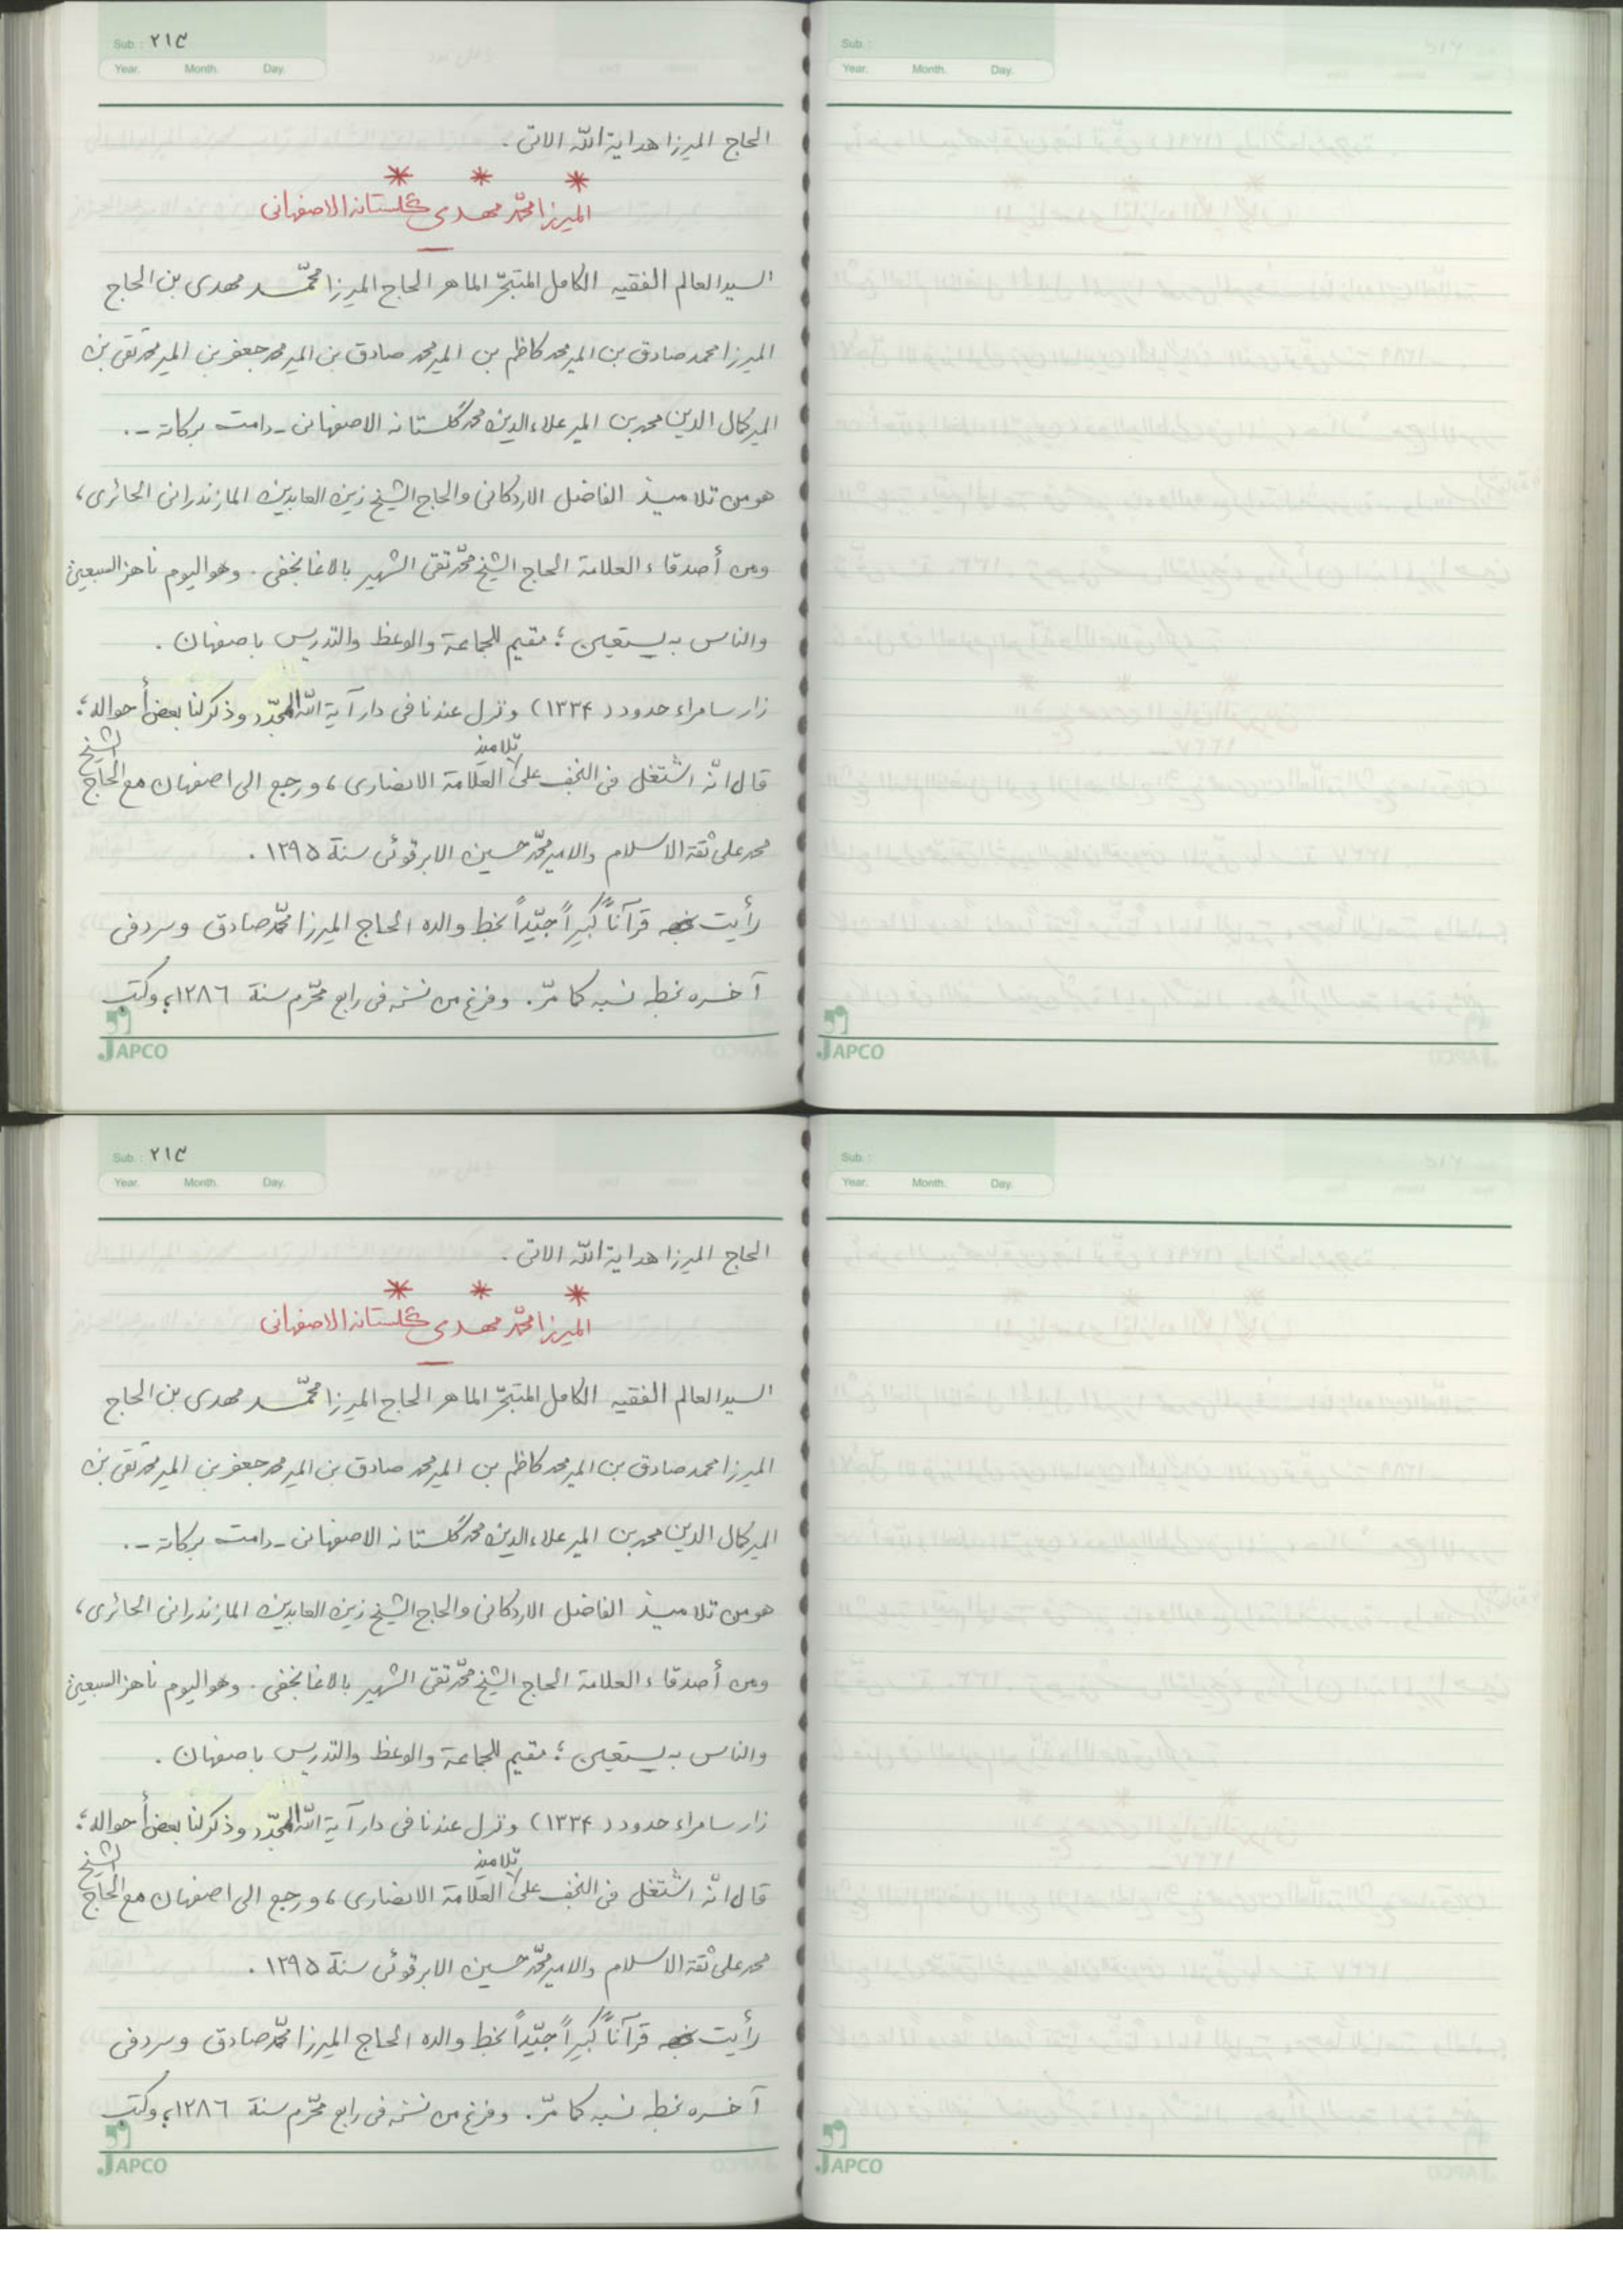 Sub.: ٢١٣
Year. Month. Day.
الحاج الميرزا هداية اللّه الآتى .
* * *
الميرزا محمّد مهدى گلستانه الاصفهانى
السيد العالم الفقيه الكامل المتبحّر الماهر الحاج الميرزا محمّد مهدى بن الحاج
الميرزا محمد صادق بن المير محمد كاظم بن المير محمد صادق بن المير محمد جعفر بن المير محمد تقى بن
المير كمال الدين محمد بن المير علاء الدين محمد گلستانه الاصفهانى ـ دامت بركاته ـ .
هو من تلاميذ الفاضل الاردكانى والحاج الشيخ زين العابدين المازندرانى الحائرى،
ومن أصدقاء العلامة الحاج الشيخ محمّد تقى الشهير بالاغا نجفى . وهو اليوم ناهز السبعين
والناس به يستقين ؛ مقيم للجماعة والوعظ والتدريس باصفهان .
زار سامراء حدود (١٣٣۴) ونزل عندنا فى دار آية اللّه المجدّد وذكر لنا بعض أحواله؛
قال انّه اشتغل فى النجف على تلاميذ العلّامة الانصارى، ورجع الى اصفهان مع الحاج الشيخ
محمد على ثقة الاسلام والامير محمّد حسين الابرقوئى سنة ١٢٩۵ .
رأيت قرآناً كبيراً جيّداً بخط والده الحاج الميرزا محمّد صادق وسرد فى
آخره بخطه نسبه كما مرّ . وفرغ من نسخه فى رابع محرّم سنة ١٢٨٦، وكتب
JAPCO
Sub.:
Year. Month. Day.
JAPCO
Sub.: ٢١٣
Year. Month. Day.
الحاج الميرزا هداية اللّه الآتى .
* * *
الميرزا محمّد مهدى گلستانه الاصفهانى
السيد العالم الفقيه الكامل المتبحّر الماهر الحاج الميرزا محمّد مهدى بن الحاج
الميرزا محمد صادق بن المير محمد كاظم بن المير محمد صادق بن المير محمد جعفر بن المير محمد تقى بن
المير كمال الدين محمد بن المير علاء الدين محمد گلستانه الاصفهانى ـ دامت بركاته ـ .
هو من تلاميذ الفاضل الاردكانى والحاج الشيخ زين العابدين المازندرانى الحائرى،
ومن أصدقاء العلامة الحاج الشيخ محمّد تقى الشهير بالاغا نجفى . وهو اليوم ناهز السبعين
والناس به يستقين ؛ مقيم للجماعة والوعظ والتدريس باصفهان .
زار سامراء حدود (١٣٣۴) ونزل عندنا فى دار آية اللّه المجدّد وذكر لنا بعض أحواله؛
قال انّه اشتغل فى النجف على تلاميذ العلّامة الانصارى، ورجع الى اصفهان مع الحاج الشيخ
محمد على ثقة الاسلام والامير محمّد حسين الابرقوئى سنة ١٢٩۵ .
رأيت قرآناً كبيراً جيّداً بخط والده الحاج الميرزا محمّد صادق وسرد فى
آخره بخطه نسبه كما مرّ . وفرغ من نسخه فى رابع محرّم سنة ١٢٨٦، وكتب
JAPCO
Sub.:
Year. Month. Day.
JAPCO